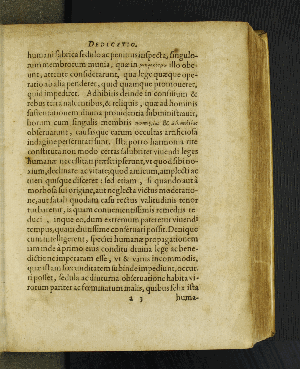 DEDICATIO.
humani fabrica sedulo ac penitus inspecta, singulo-
rum membrorum munia, quæ in illo obe-
unt, attente considerarunt, qua lege quæque ope-
ratio ab alia penderet, quid quamque promoueret,
quid impediret. Adhibitis deinde in consilium &
rebus terra nascentibus, & reliquis, quæ ad hominis
sustentationem diuina prouidentia subministrauit,
horum cum singulis membris
obseruarunt, causasque earum occultas artificiosa
indagine perscrutati sunt. Ista porro harmonia rite
constituta non modo certas salubriter viuendi leges
humanæ necessitati præscripserunt, vt quod sibi no-
xium, declinare ac vitare: quod amicum, amplecti ac
tueri quisque disceret: sed etiam, si quando aut à
morbosa sui origine, aut neglecta victus moderatio-
ne, aut fatali quodam casu rectus valitudinis tenor
turbaretur, is quam conuenientissimis remediis re-
duci, inque eo, dum extremum pateretur viuendi
tempus, quam diutissime conseruari posset. Denique
cum intelligerent, speciei humanæ propagationem
iam inde à primo eius conditu diuina lege ac bene-
dictione imperatam esse, vt & variis incommodis,
quæ istam fœcunditatem subinde impediunt, occur-
ri posset, sedula ac diuturna obseruatione habita vi-
rorum pariter ac fœminarum malis, quibus felix ista
a 3 huma-